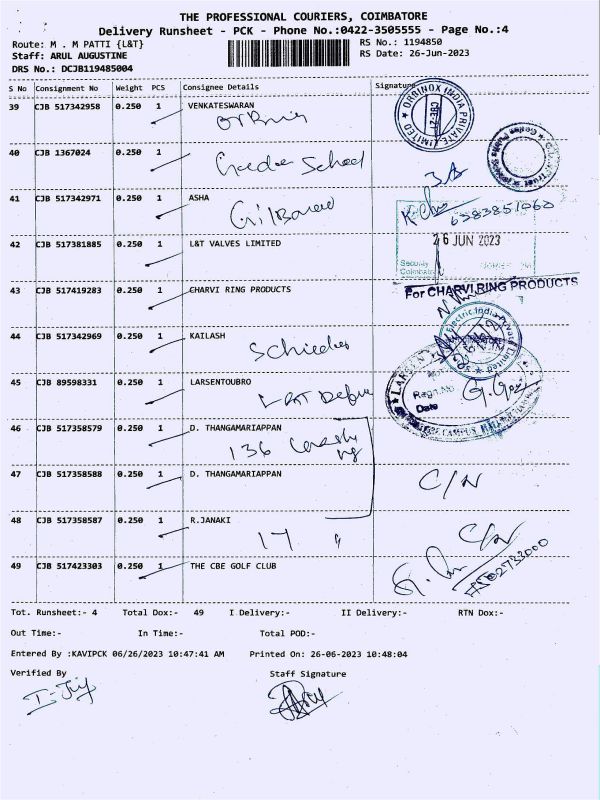 THE PROFESSIONAL COURIERS, COIMBATORE
Delivery Runsheet - PCK - Phone No.:0422-3505555 - Page No.:4
Route: M . M PATTI {L&T} RS No.: 1194850
Staff: ARUL AUGUSTINE RS Date: 26-Jun-2023
DRS No.: DCJB119485004
S No Consignment No Weight PCS Consignee Details Signature
39 CJB 517342958 0.250 1 VENKATESWARAN
ORBINOX INDIA PRIVATE LIMITED
CBE-21
40 CJB 1367024 0.250 1
School
41 CJB 517342971 0.250 1 ASHA
6383851068
42 CJB 517381885 0.250 1 L&T VALVES LIMITED
26 JUN 2023
Security
43 CJB 517419283 0.250 1 CHARVI RING PRODUCTS
For CHARVI RING PRODUCTS
44 CJB 517342969 0.250 1 KAILASH
Electric India Private Limited
45 CJB 89598331 0.250 1 LARSENTOUBRO
Regn.No
Date
46 CJB 517358579 0.250 1 D. THANGAMARIAPPAN
136
47 CJB 517358588 0.250 1 D. THANGAMARIAPPAN
C/N
48 CJB 517358587 0.250 1 R.JANAKI
17
C/N
49 CJB 517423303 0.250 1 THE CBE GOLF CLUB
Tot. Runsheet:- 4 Total Dox:- 49 I Delivery:- II Delivery:- RTN Dox:-
Out Time:- In Time:- Total POD:-
Entered By :KAVIPCK 06/26/2023 10:47:41 AM Printed On: 26-06-2023 10:48:04
Verified By Staff Signature